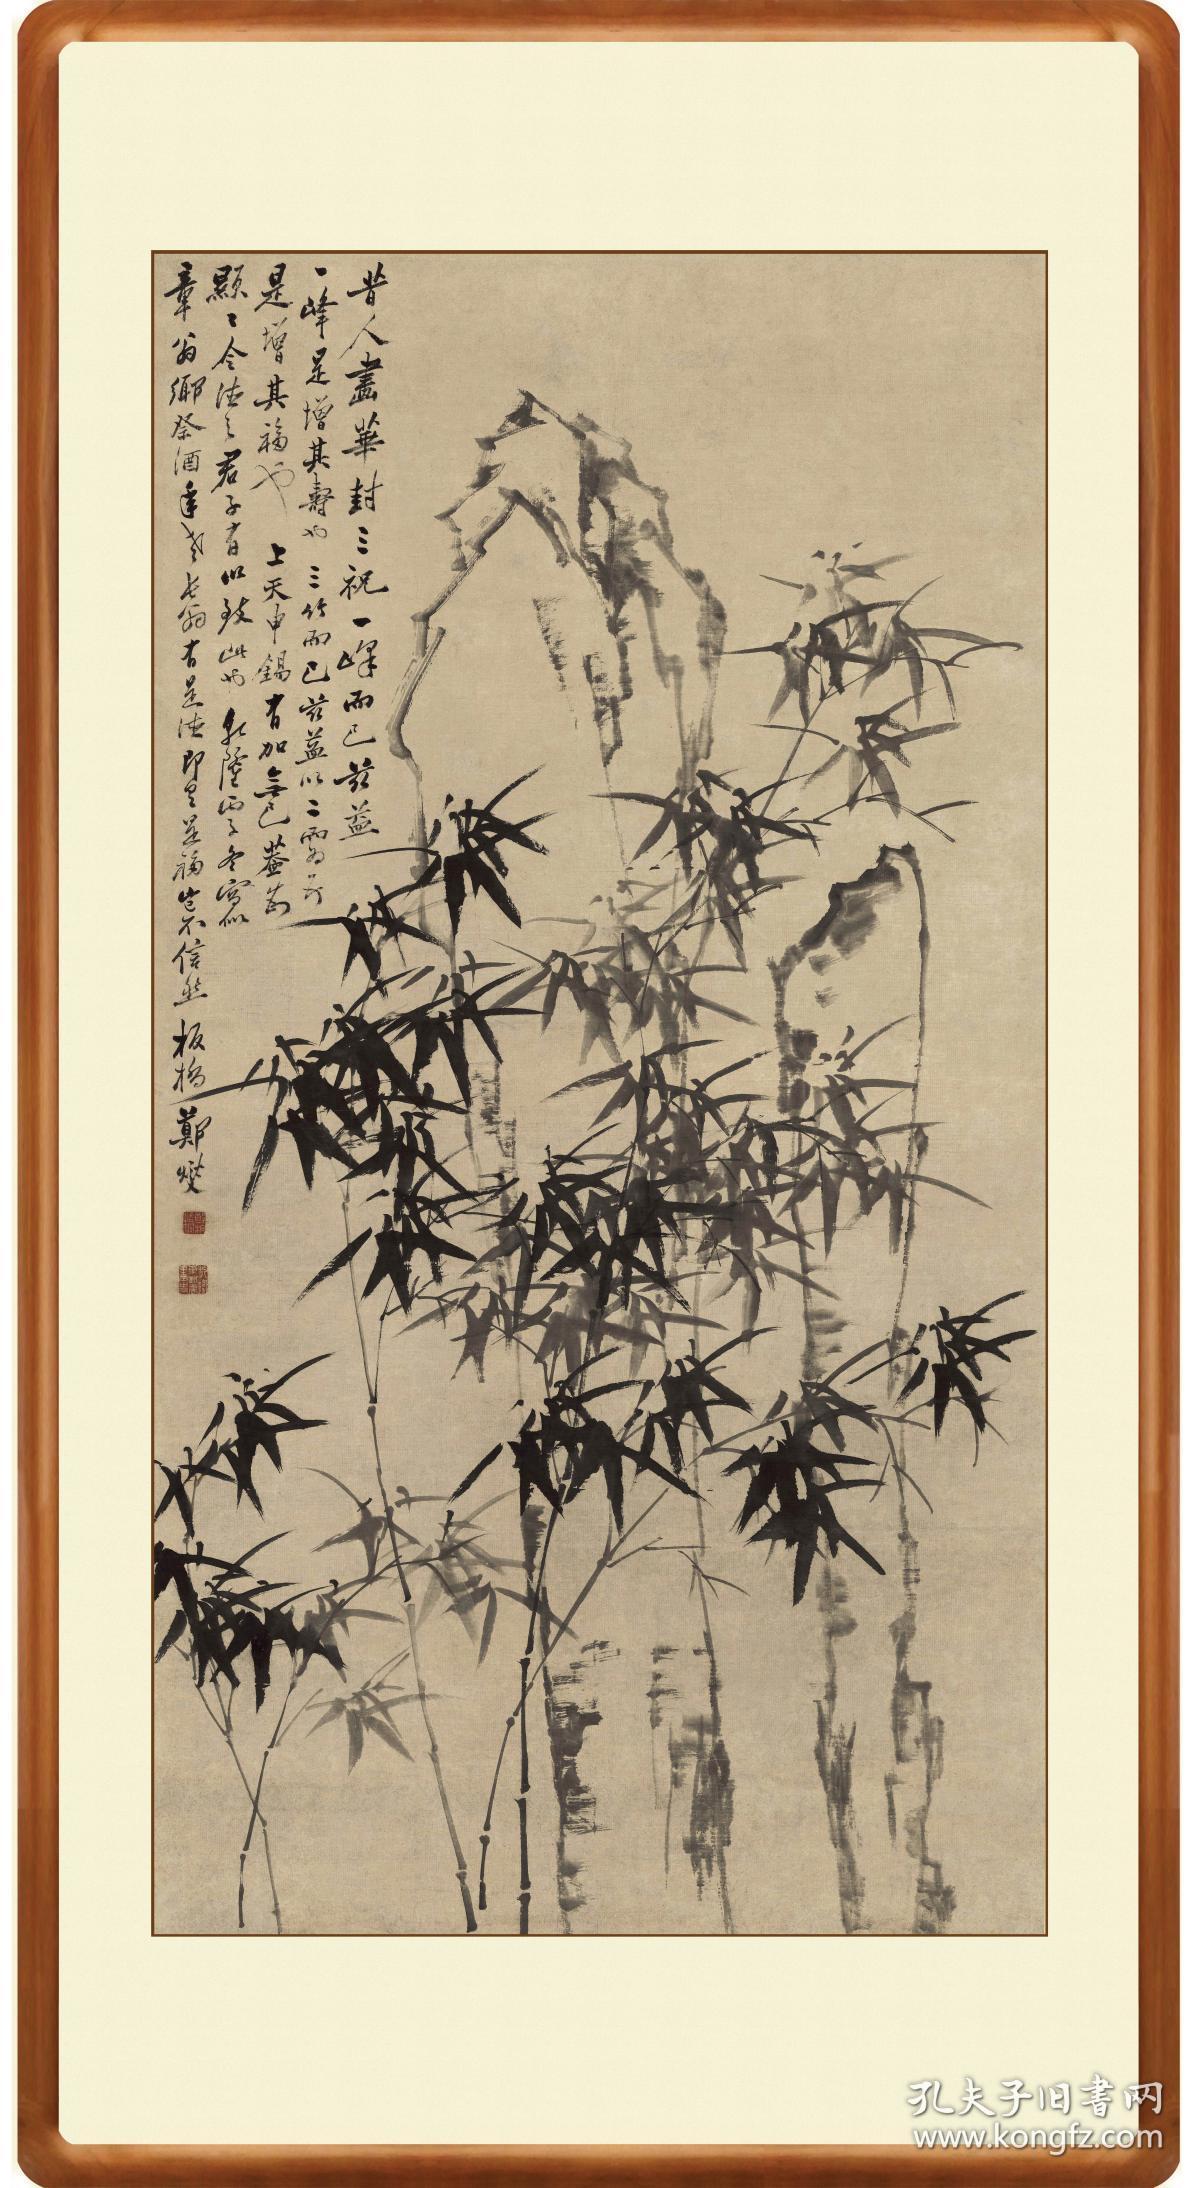 昔人畫華封三祝一峰而已茲益
一峰是增其壽也三竹而已茲益以二
是增其福也上天申錫有加無已蓋
顯〻令德之君子有以致此也乾隆丙子冬寫似
章翁鄉祭酒年老長翁有是德即是是福豈不信然板橋鄭燮
孔夫子旧书网
www.kongfz.com